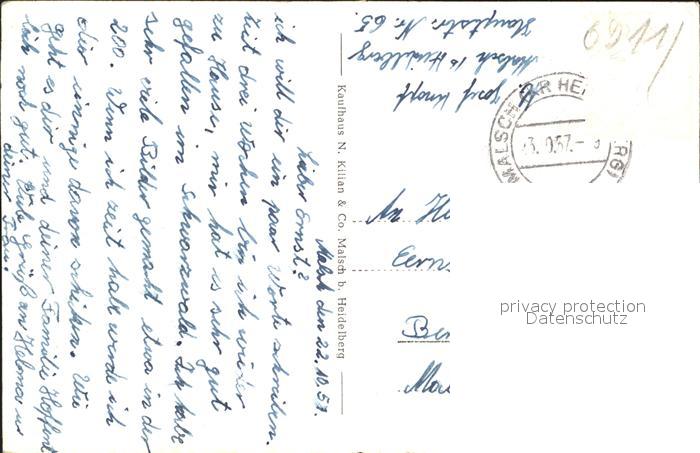 Malsch den 22.10.57.
Lieber Ernst!
ich will dir ein paar Worte schreiben.
Seit drei Wochen bin ich wieder
zu Hause, mir hat es sehr gut
gefallen im Schwarzwald. Ich habe
sehr viele Bilder gemacht etwa in der
200. Wenn ich zeit habe werde ich
dir einige davon schicken. Wie
geht es dir und deiner Familie Hoffent
lich noch gut. Viele Grüße an Helma u
deiner Frau.
Kaufhaus N. Kilian & Co. Malsch b. Heidelberg
Josef Knopf
Malsch b. Heidelberg
Hauptstr. Nr. 65.
6911
MALSCH KR HE RG)
3. 0.57.-8
An He
Bei
privacy protection
Datenschutz